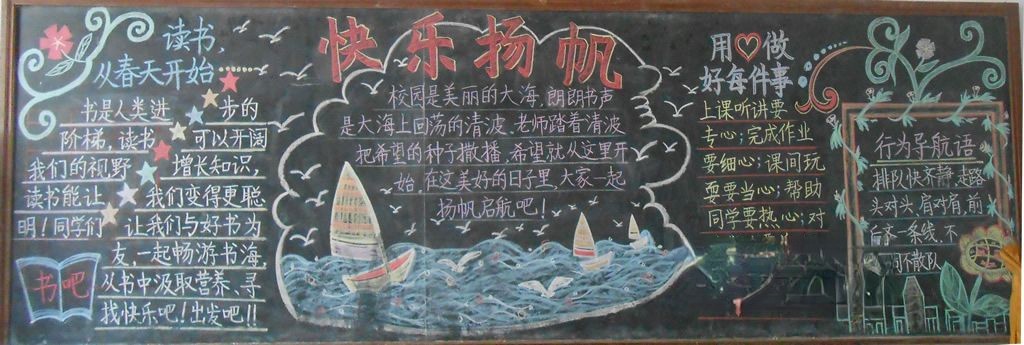 读书,
从春天开始
书是人类进步的
阶梯,读书可以开阔
我们的视野增长知识,
读书能让我们变得更聪
明!同学们让我们与好书为
友,一起畅游书海,
从书中汲取营养、寻
找快乐吧!出发吧!!
书吧
快乐扬帆
校园是美丽的大海,朗朗书声
是大海上回荡的清波,老师踏着清波
把希望的种子撒播,希望就从这里开
始,在这美好的日子里,大家一起
扬帆启航吧!
用做
好每件事
上课听讲要
专心;完成作业
要细心;课间玩
耍要当心;帮助
同学要热心;对
行为导航语
排队快齐静,走路
头对头,肩对肩,前
后齐一条线,不
不散队